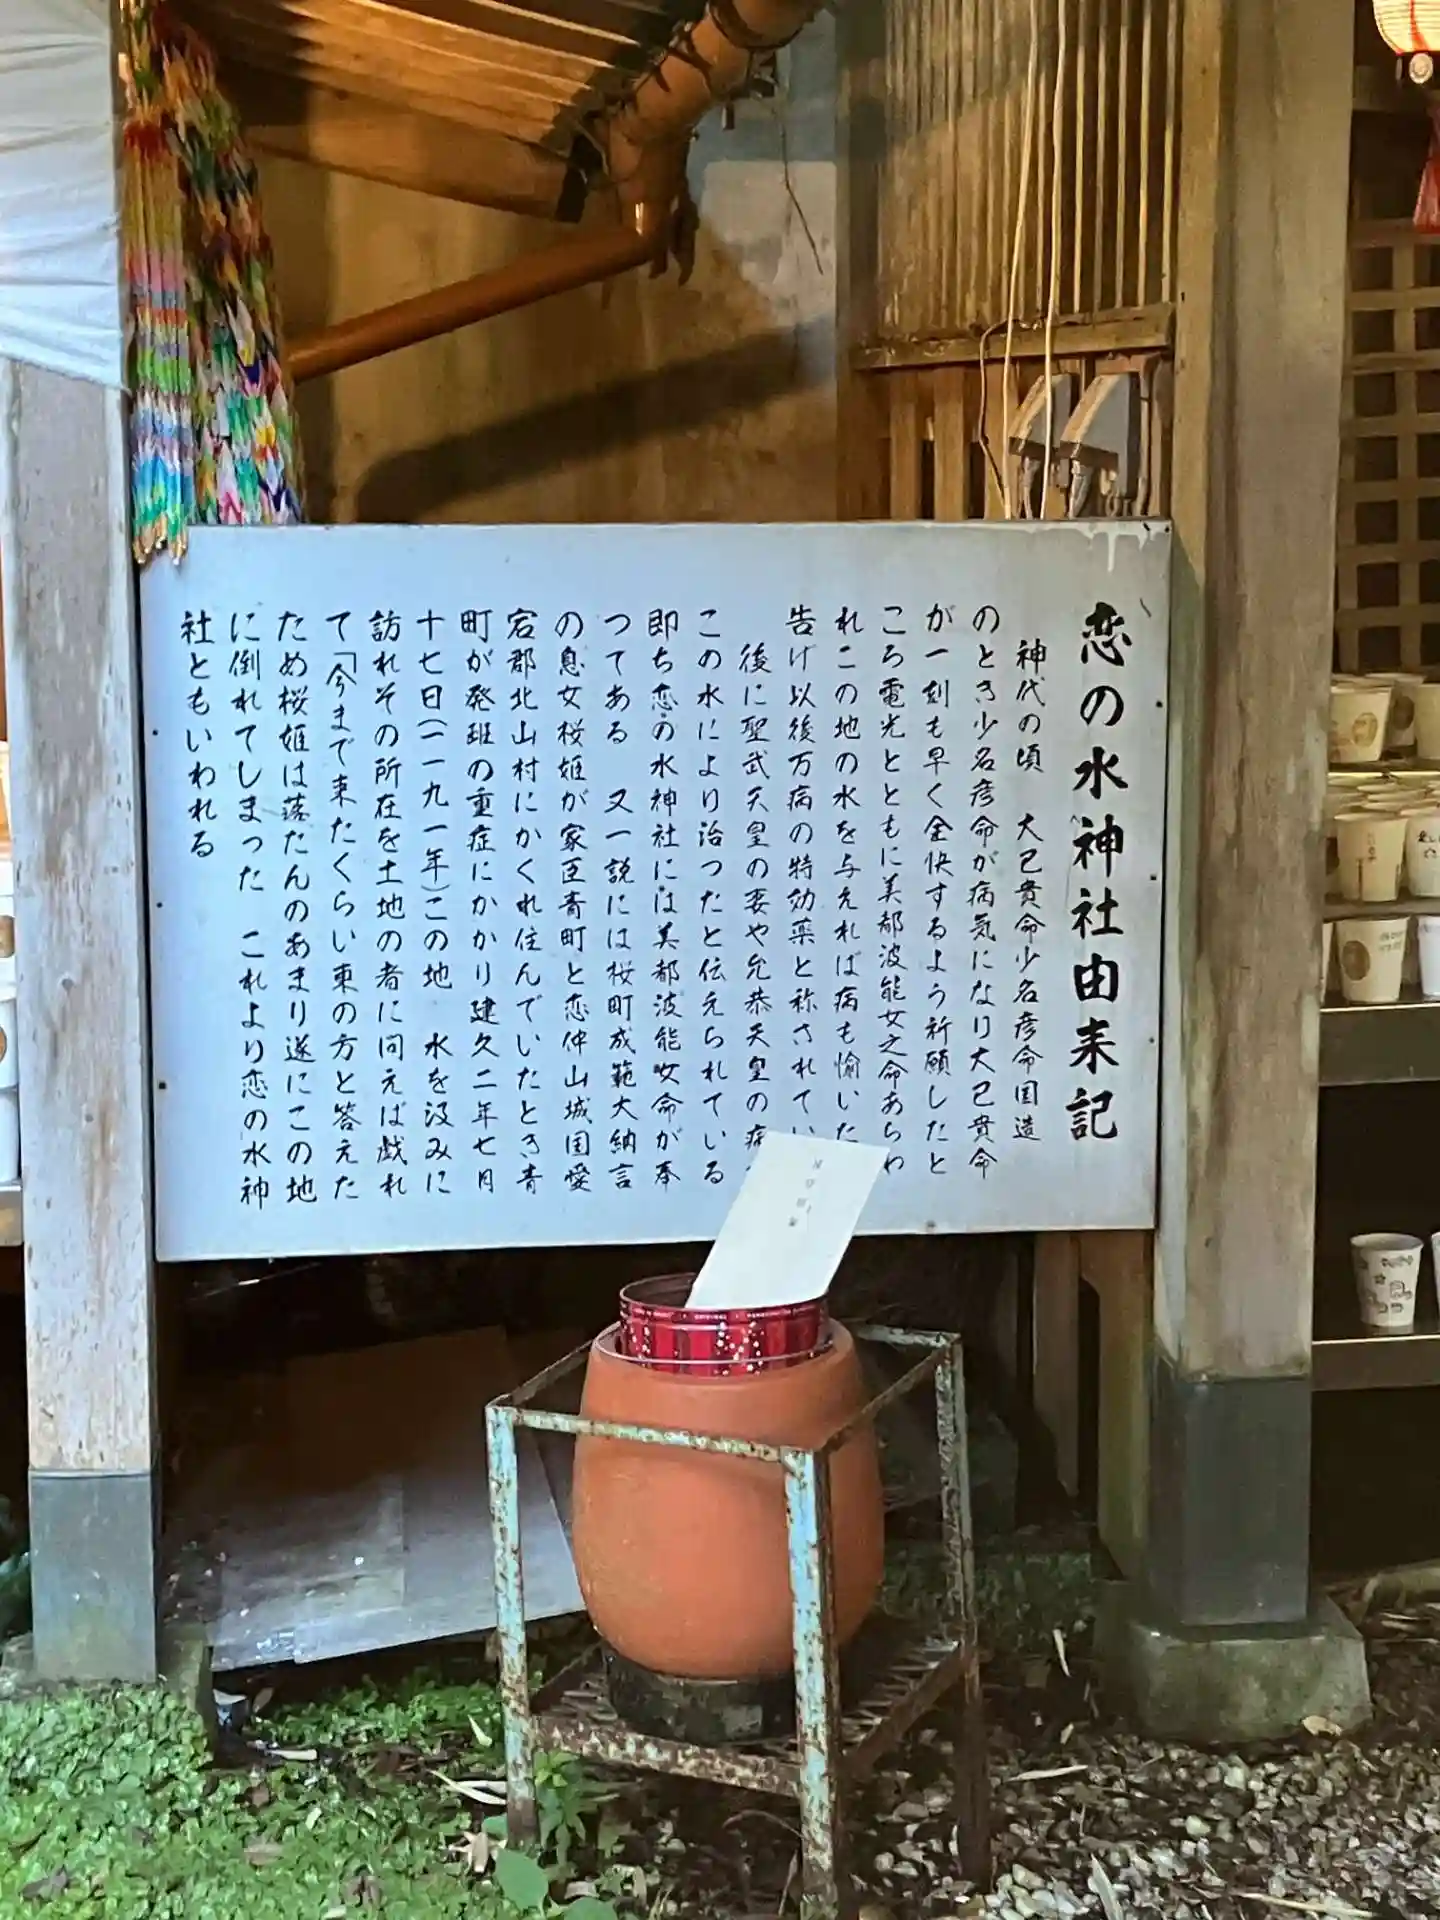 恋の水神社由来記
神代の頃　大己貴命少名彦命国造
のとき少名彦命が病気になり大己貴命
が一刻も早く全快するよう祈願したと
ころ電光とともに美都波能女之命あらわ
れこの地の水を与えれば病も愉いた
告げ以後万病の特効薬と称されてい
後に聖武天皇の妻や允恭天皇の病
この水により治つたと伝えられている
即ち恋の水神社には美都波能女命が奉
つてある　又一説には桜町成範大納言
の息女桜姫が家臣青町と恋仲山城国愛
宕郡北山村にかくれ住んでいたとき青
町が発班の重症にかかり建久二年七月
十七日（一一九一年）この地　水を汲みに
訪れその所在を土地の者に問えば戯れ
て「今まで来たくらい東の方と答えた
ため桜姫は落たんのあまり遂にこの地
に倒れてしまった　これより恋の水神
社ともいわれる